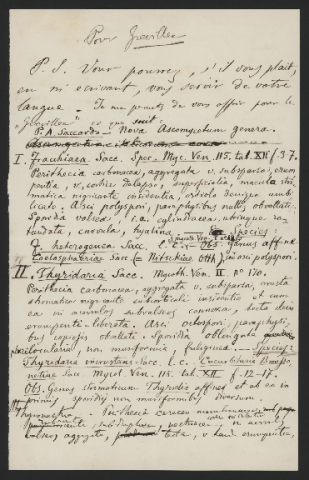 Pour Grevillea
P. S. Vous pourrez, s'il vous plait,
en m'ecrivant, vous servir de votre
langue. Je me permets de vous offrir pour le
"Grevillea" ce qui suit:
P. A. Saccardo - Nova Ascomycetum genera.
I. Frachiaea Sacc. Spec. Myc. Ven. 115. tab. XII f. 3-7.
Perithecia carbonacea, aggregata v. subsparsa, erum
pentia, v. cortice delapso, superficialia, macula stro
matica nigricante insidentia, ostiolo denique umbi
licato. Asci polyspori, paraphysibus nullis obvallati.
Sporidia valsea, i. e. cylindracea utrinque ro-
tundata, curvula, hyalina. Species:
F. heterogenea Sacc. l. c. Obs. Genus affine
Coelosphaeriae Sacc. (= Nitschkiae Otth.) ascis polyspori.
II. Thyridaria Sacc. Mycoth. Ven. II. n. 170.
Perithecia carbonacea, aggregata v. subsparsa, crusta
stromatica nigricante subcorticali insidentia et cum
ea in acervulos subvalseos connexa, tecta dein
erumpenti-liberata. Asci octospori, paraphysi-
bus copiosis obvallati. Sporidia oblonga
locularia, non muriformia, fuliginea. Species:
Thyridaria incrustans Sacc. l. c. Cucurbitaria Broussonetiae Sacc. Mycol. Ven. 115. tab. XII f. 12-17.
Obs. Genus stromaticum Thyridio affine et ab ea in
primis sporidiis non muriformibus diversum.
III. Thyronectria. Perithecia carnea
valseos aggregata, tecta, v. haud erumpentia,